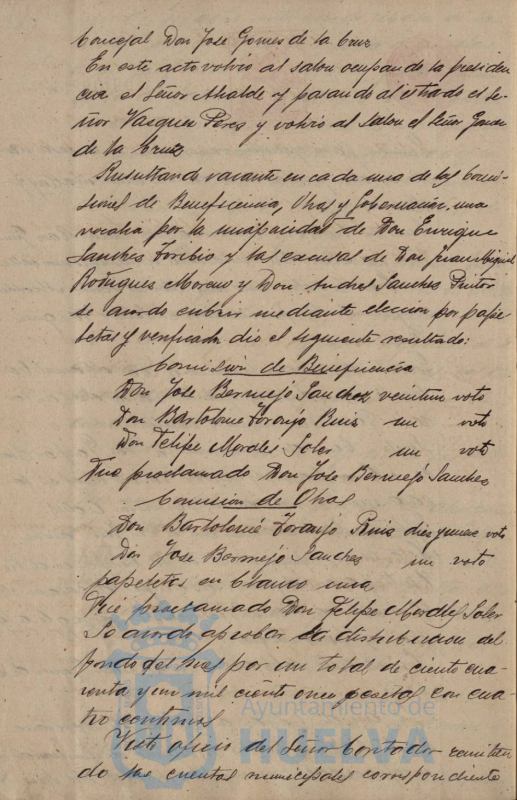 Concejal Don Jose Gomes de la Cruz
En este acto volvió al salon ocupando la presiden
cia el Señor Alcalde y pasando al estrado el Se
ñor Vasquez Peres y volvió al Salon el Señor Gomes
de la Cruz
Resultando vacante en cada una de las Comi
siones de Beneficencia, Obras y Gobernación, una
vocalia por la incapacidad de Don Enrique
Sanches Toribio y las excusas de Don Juan Miguel
Rodrigues Moreno y Don Andres Sanches Pintor
se acordo cubrir mediante eleccion por pape
letas y verificada dio el siguiente resultado:
Comision de Beneficencia
Don Jose Bermejo Sanchez veintiun voto
Don Bartolome Toranjo Ruis un voto
Don Felipe Morales Soler un voto
Fue proclamado Don Jose Bermejo Sanches
Comision de Obras
Don Bartolomé Toranjo Ruis diez y nueve voto
Don Jose Bermejo Sanches un voto
papeletas en blanco una
proclamado Don Felipe Morales Soler
Se acordo aprobar la distribucion del
fondo del mes por un total de ciento cua
renta y un mil ciento once pesetas con cua
tro centimos
Visto oficio del Señor Contador remitien
do las cuentas municipales correspondiente
Ayuntamiento de
HUELVA